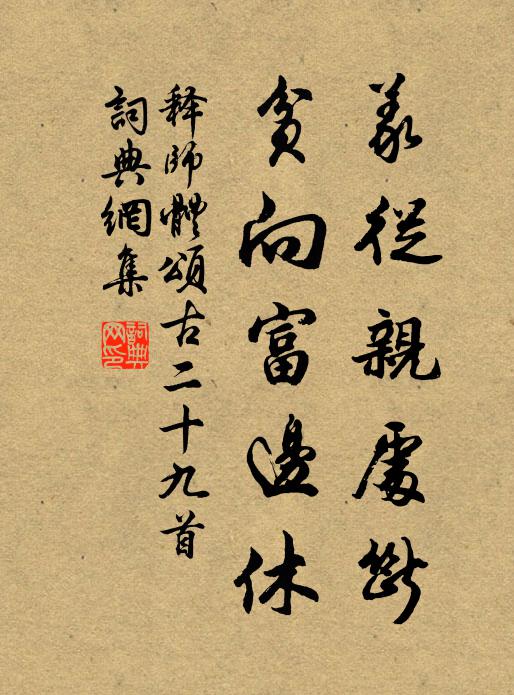 義從親處斷
貧向富邊休
释師體頌古二十九首
詞典網集
詞典網印